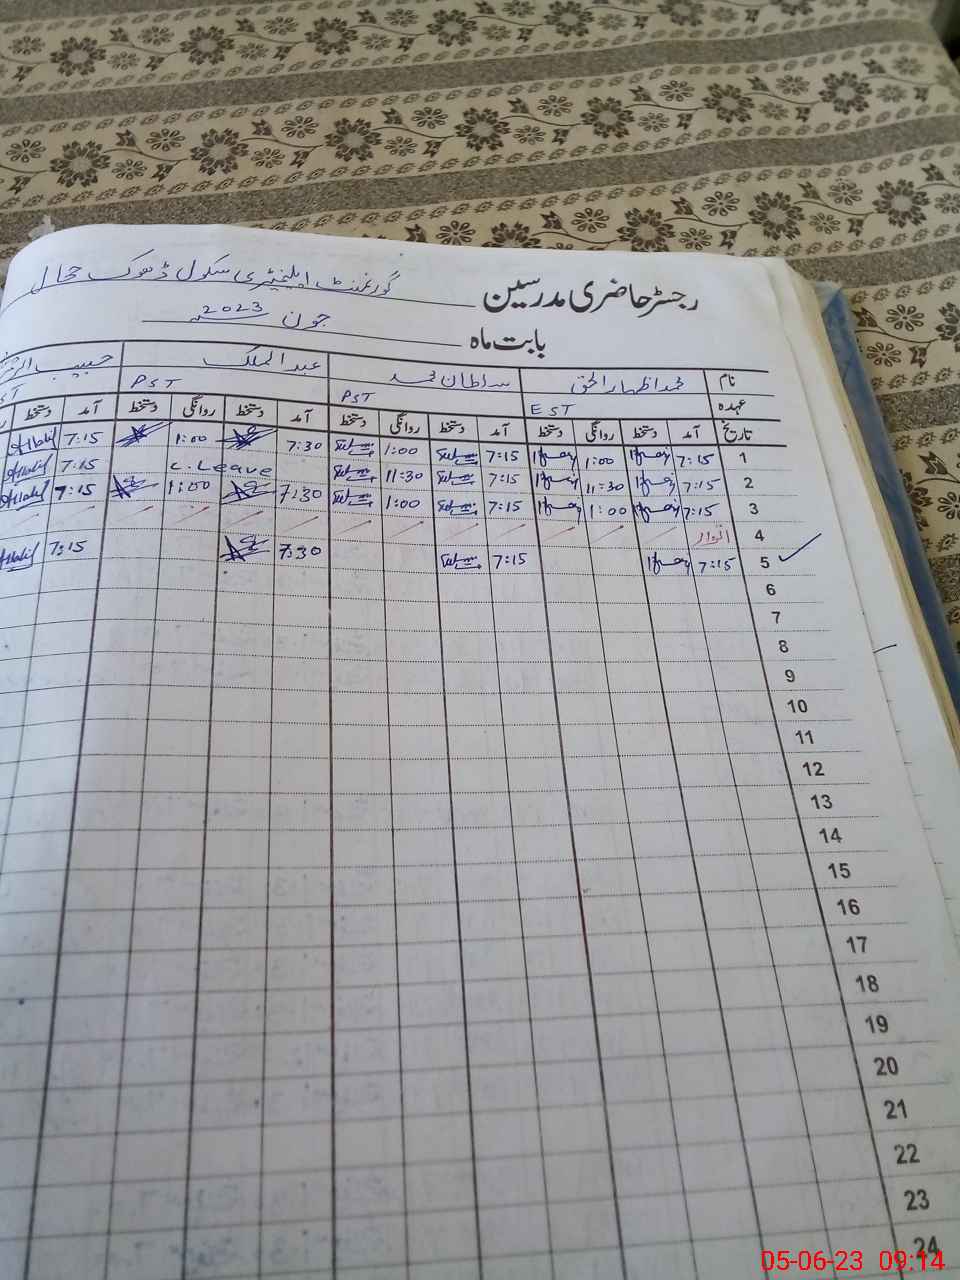 رجسٹر حاضری مدرسین گورنمنٹ ایلیمنٹری سکول ڈھوک
بابت ماہ جون 2023
نام محمد اظہار الحق سلطان محمد عبد الملک حبیب
عہدہ EST PST PST
تاریخ آمد دستخط روانگی دستخط آمد دستخط روانگی دستخط آمد دستخط روانگی دستخط آمد دستخط
1 7:15 1:00 7:15 1:00 7:30 1:00 7:15
2 7:15 11:30 7:15 11:30 C. Leave 7:15
3 7:15 1:00 7:15 1:00 7:30 1:00 7:15
4 اتوار
5 7:15 7:15 7:30 7:15
6
7
8
9
10
11
12
13
14
15
16
17
18
19
20
21
22
23
24
05-06-23 09:14